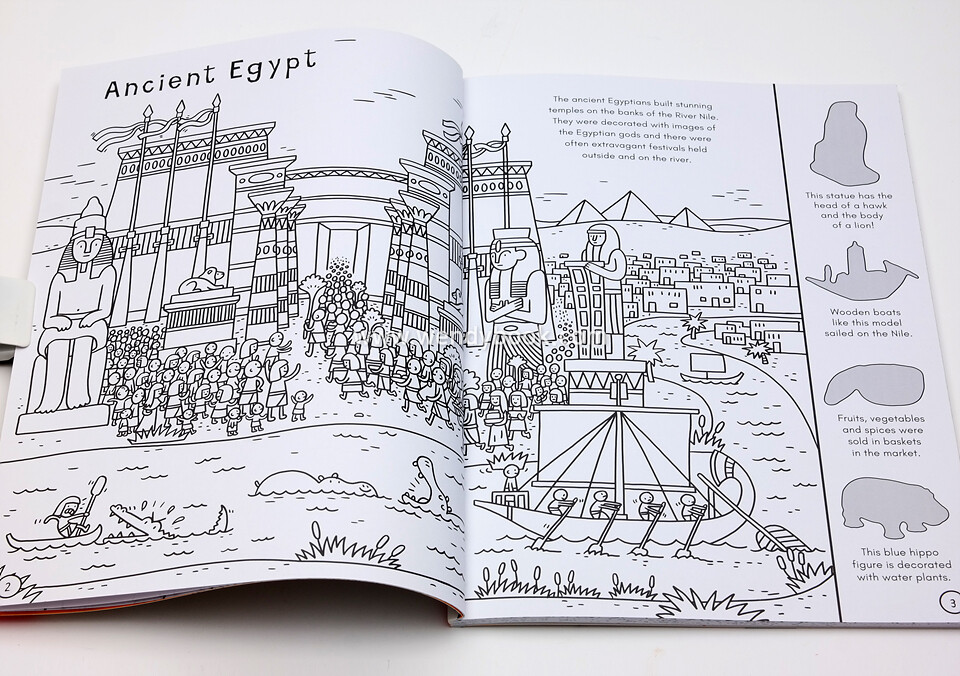 Ancient Egypt
The ancient Egyptians built stunning
temples on the banks of the River Nile.
They were decorated with images of
the Egyptian gods and there were
often extravagant festivals held
outside and on the river.
This statue has the
head of a hawk
and the body
of a lion!
Wooden boats
like this model
sailed on the Nile.
Fruits, vegetables
and spices were
sold in baskets
in the market.
This blue hippo
figure is decorated
with water plants.
2
3